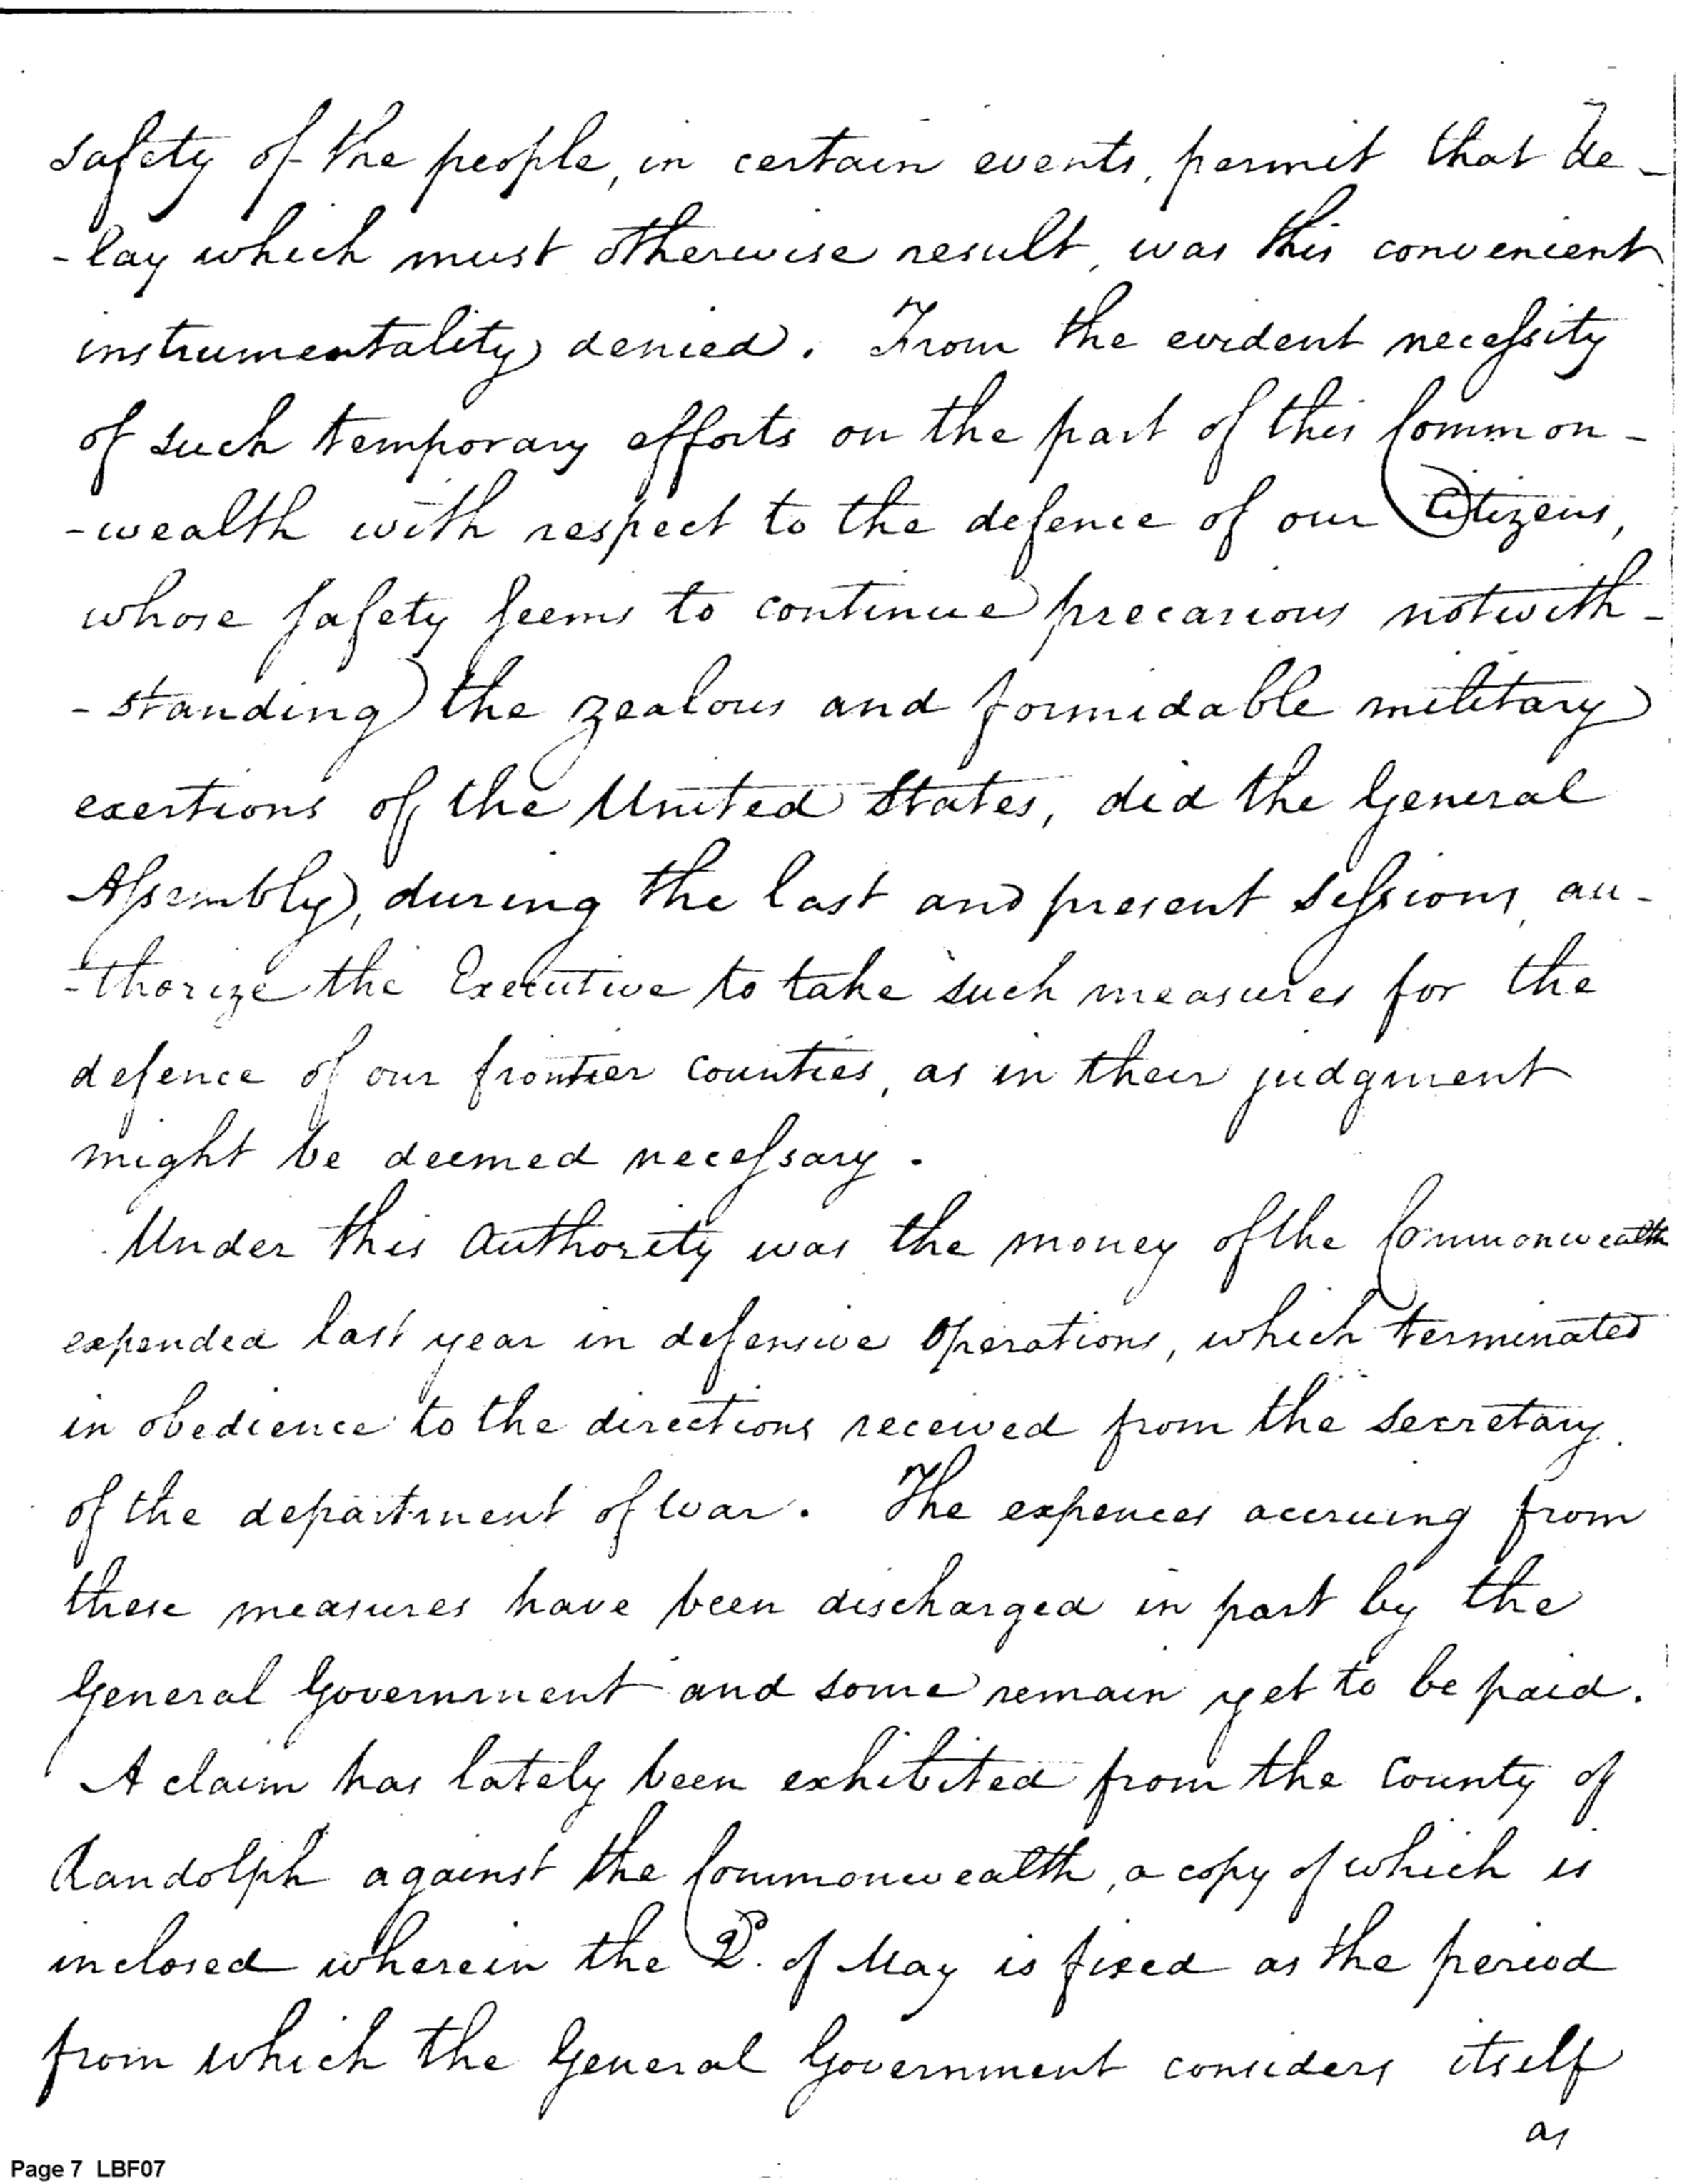 safety of the people, in certain events, permit that de-
-lay which must otherwise result, was this convenient
instrumentality denied. From the evident necessity
of such temporary efforts on the part of this Common-
-wealth with respect to the defence of our Citizens,
whose safety seems to continue precarious notwith-
-standing the zealous and formidable military
exertions of the United States, did the General
Assembly, during the last and present sessions, au-
-thorize the Executive to take such measures for the
defence of our frontier counties, as in their judgment
might be deemed necessary.
Under this Authority was the money of the Commonwealth
expended last year in defensive operations, which terminated
in obedience to the directions received from the secretary
of the department of war. The expences accruing from
these measures have been discharged in part by the
General Government and some remain yet to be paid.
A claim has lately been exhibited from the County of
Randolph against the Commonwealth, a copy of which is
inclosed wherein the 2d. of May is fixed as the period
from which the General Government considers itself
as
Page 7 LBF07